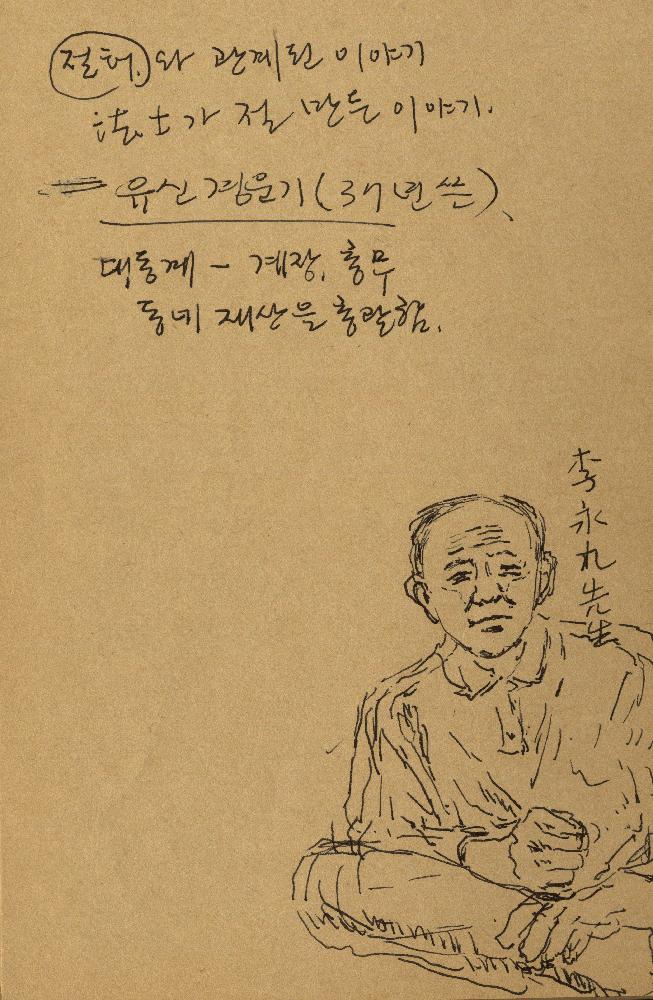 절터.와 관계된 이야기
法士가 절 만든 이야기.
유신 경문기 (37년 쓴)
대동계 - 계장, 총무
동네 재산을 총괄함.
李永九先生